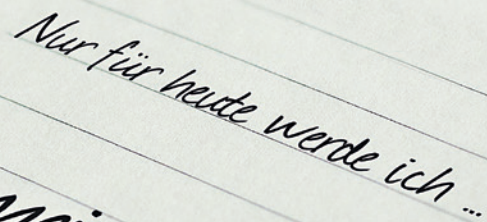 Nur für heute werde ich ...